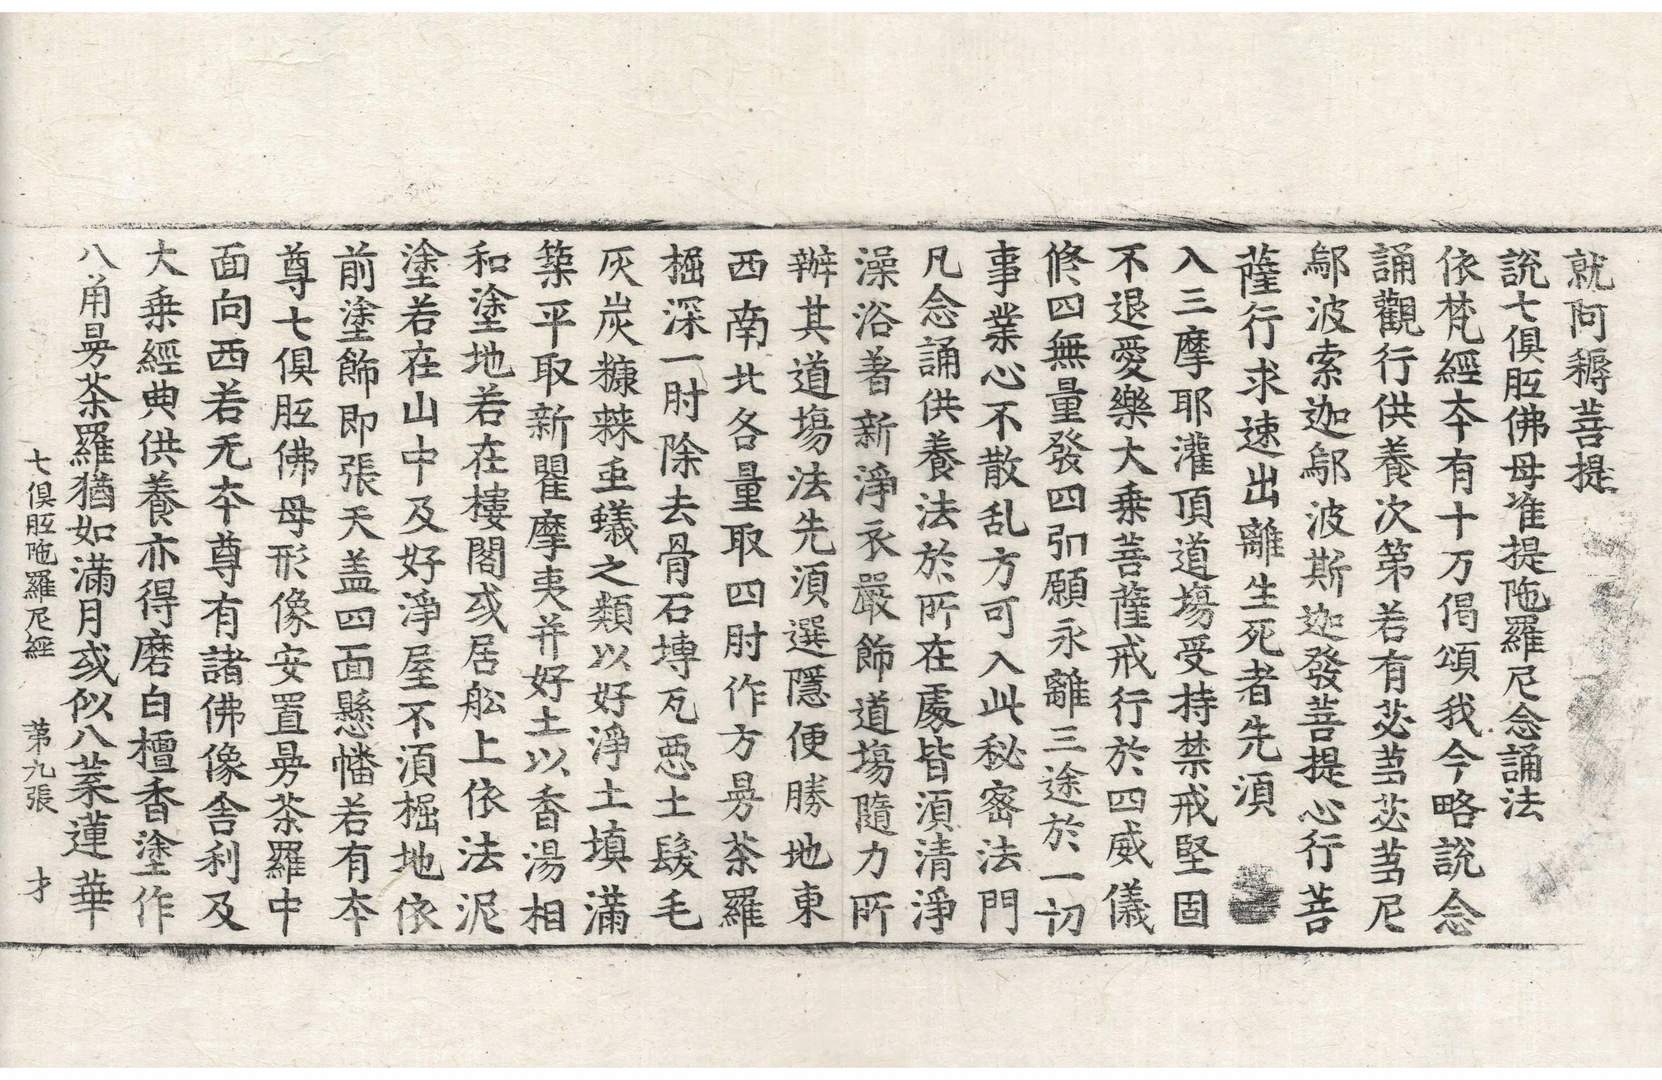 就阿耨菩提
說七俱胝佛母准提陁羅尼念誦法
依梵經夲有十万偈頌我今略說念
誦觀行供養次第若有苾芻苾芻尼
鄔波索迦鄔波斯迦發菩提心行菩
薩行求速出離生死者先湏
入三摩耶灌頂道塲受持禁戒堅固
不退愛樂大乗菩薩戒行於四威儀
修四無量發四弘願永離三途於一切
事業心不散乱方可入此秘密法門
凡念誦供養法於所在處皆湏清淨
澡浴著新淨衣嚴飾道塲隨力所
辦其道塲法先湏選隱便勝地東
西南北各量取四肘作方曼荼羅
掘深一肘除去骨石塼瓦惡土髮毛
灰炭糠棘虫蟻之類以好淨土填滿
築平取新瞿摩夷并好土以香湯相
和塗地若在樓閣或居舩上依法泥
塗若在山中及好淨屋不湏掘地依
前塗飾即張天盖四面懸幡若有夲
尊七俱胝佛母形像安置曼荼羅中
面向西若无夲尊有諸佛像舍利及
大乗經典供養亦得磨白檀香塗作
八角曼荼羅猶如滿月或似八葉蓮華
七俱胝陁羅尼經　第九張　才